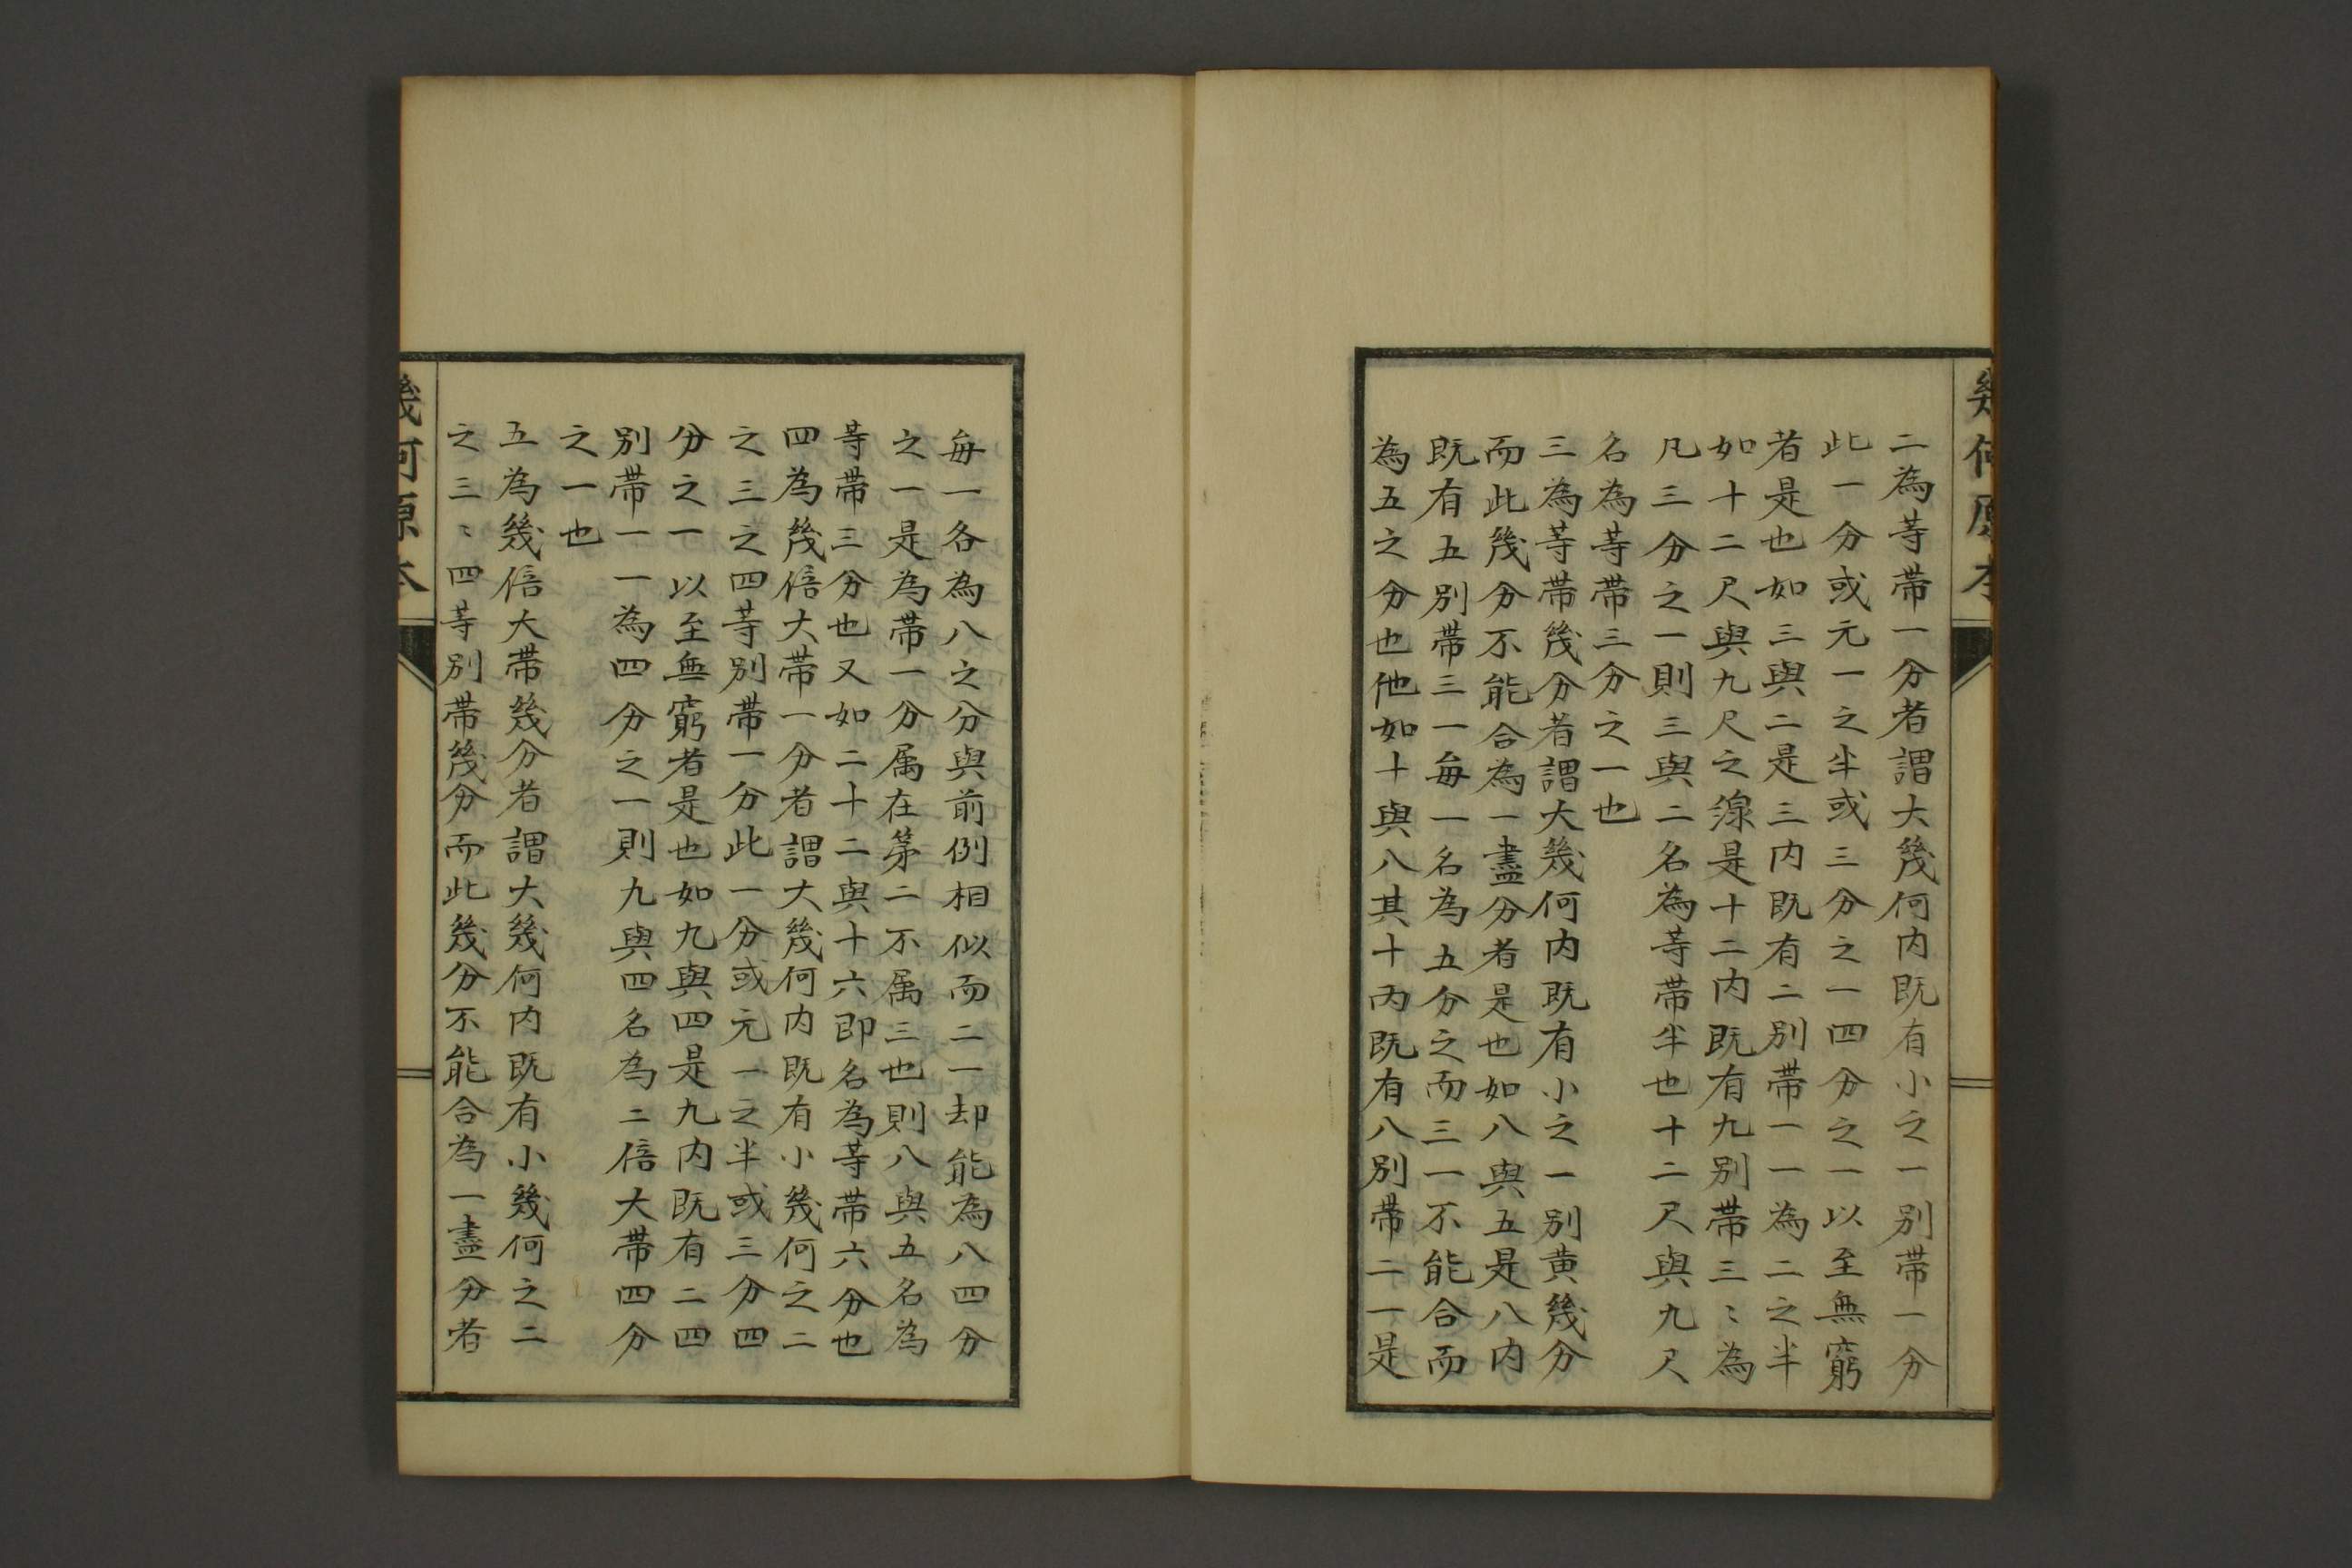 幾何原本
二為等帶一分者謂大幾何内既有小之一別帶一分
此一分或元一之半或三分之一四分之一以至無窮
者是也如三與二是三内既有二別帶一一為二之半
如十二尺與九尺之線是十二内既有九別帶三〻為
凡三分之一則三與二名為等帶半也十二尺與九尺
名為等帶三分之一也
三為等帶幾分者謂大幾何内既有小之一別黄幾分
而此幾分不能合為一盡分者是也如八與五是八内
既有五別帶三一每一名為五分之而三一不能合而
為五之分也他如十與八其十内既有八別帶二一是
每一各為八之分與前例相似而二一却能為八四分
之一是為帶一分属在第二不属三也則八與五名為
等帶三分也又如二十二與十六即名為等帶六分也
四為幾倍大帶一分者謂大幾何内既有小幾何之二
之三之四等別帶一分此一分或元一之半或三分四
分之一以至無窮者是也如九與四是九内既有二四
別帶一一為四分之一則九與四名為二倍大帶四分
之一也
五為幾倍大帶幾分者謂大幾何内既有小幾何之二
之三〻四等別帶幾分而此幾分不能合為一盡分者
幾何原本